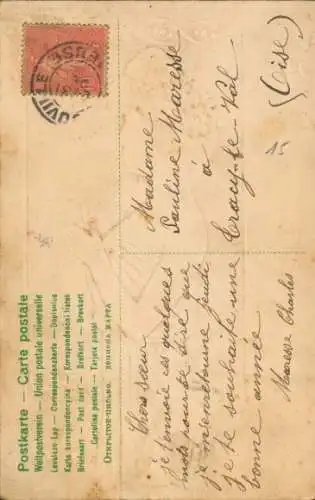 Postkarte — Carte postale
Weltpostverein — Union postale universelle
Levelező Lap — Correspondenzkarte — Dopisnice
Karta korespondencyjna — Korespondenční lístek
Briefkaart — Post card — Brefkort — Brevkort
Cartolina postale — Tarjeta postal
Madame
Pauline Maresse
à
Tracy-le-Val
(Oise)
15
Chère sœur
je t'envoie ces quelques
mots pour te dire que
je m'en retourne jeudi
je te souhaite une
bonne année
Maresse Charles